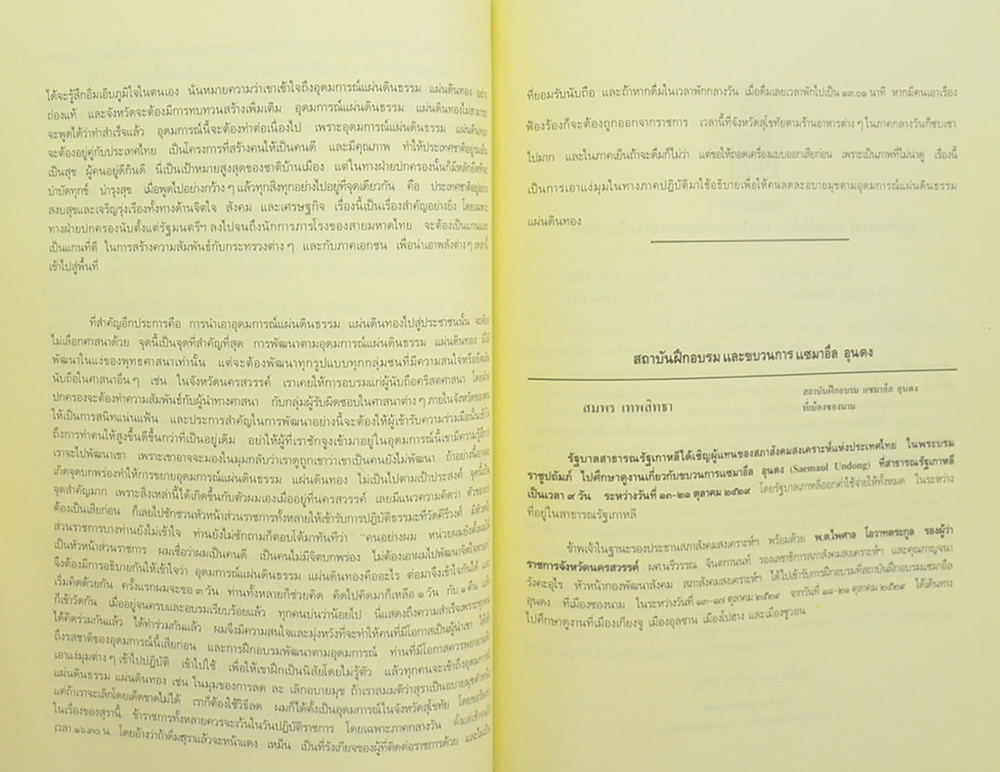 ได้จะรู้สึกอิ่มเอิบภูมิใจในตนเอง นั่นหมายความว่าเขาเข้าใจถึงอุดมการณ์แผ่นดินธรรม แผ่นดินทอง อย่าง
ถ่องแท้ และจังหวัดจะต้องมีการทบทวนสร้างเพิ่มเติม อุดมการณ์แผ่นดินธรรม แผ่นดินทองไม่สามารถ
จะพูดได้ว่าทำสำเร็จแล้ว อุดมการณ์นี้จะต้องทำต่อเนื่องไป เพราะอุดมการณ์แผ่นดินธรรม แผ่นดินทอง
จะต้องอยู่คู่กับประเทศไทย เป็นโครงการที่สร้างคนให้เป็นคนดี และมีคุณภาพ ทำให้ประเทศชาติอยู่ร่มเย็น
เป็นสุข ผู้คนอยู่ดีกินดี นี่เป็นเป้าหมายสูงสุดของชาติบ้านเมือง แต่ในทางฝ่ายปกครองนั้นก็มีหลักยึดที่จะ
บำบัดทุกข์ บำรุงสุข เมื่อพูดไปอย่างกว้าง ๆ แล้วทุกสิ่งทุกอย่างไปอยู่ที่จุดเดียวกัน คือ ประเทศชาติอยู่อย่าง
สงบสุขและเจริญรุ่งเรืองทั้งทางด้านจิตใจ สังคม และเศรษฐกิจ เรื่องนี้เป็นเรื่องสำคัญอย่างยิ่ง โดยเฉพาะ
ทางฝ่ายปกครองนับตั้งแต่รัฐมนตรีฯ ลงไปจนถึงนักการภารโรงของสายมหาดไทย จะต้องเป็นแกนและ
เป็นแกนที่ดี ในการสร้างความสัมพันธ์กับกระทรวงต่าง ๆ และกับภาคเอกชน เพื่อนำเอาพลังต่าง ๆ เหล่านี้
เข้าไปสู่พื้นที่
ที่สำคัญอีกประการคือ การนำเอาอุดมการณ์แผ่นดินธรรม แผ่นดินทองไปสู่ประชาชนนั้น จะต้อง
ไม่เลือกศาสนาด้วย จุดนี้เป็นจุดที่สำคัญที่สุด การพัฒนาตามอุดมการณ์แผ่นดินธรรม แผ่นดินทอง มิใช่
พัฒนาในแง่ของพุทธศาสนาเท่านั้น แต่จะต้องพัฒนาทุกรูปแบบทุกกลุ่มชนที่มีความสนใจหรือยึดมั่น
นับถือในศาสนาอื่น ๆ เช่น ในจังหวัดนครสวรรค์ เราเคยให้การอบรมแก่ผู้นับถือคริสตศาสนา โดยฝ่าย
ปกครองจะต้องทำความสัมพันธ์กับผู้นำทางศาสนา กับกลุ่มผู้รับผิดชอบในศาสนาต่าง ๆ ภายในจังหวัดของตน
ให้เป็นการสนิทแน่นแฟ้น และประการสำคัญในการพัฒนาอย่างนี้จะต้องให้ผู้เข้ารับความร่วมมือนั้นเข้าใจ
ถึงการทำตนให้สูงขึ้นดีขึ้นกว่าที่เป็นอยู่เดิม อย่าให้ผู้ที่เราชักจูงเข้ามาอยู่ในอุดมการณ์นี้เขามีความรู้สึกว่า
เราจะไปพัฒนาเขา เพราะเขาอาจจะมองในมุมกลับว่าเราดูถูกเขาว่าเขาเป็นคนยังไม่พัฒนา ถ้าอย่างนี้อาจจะ
เกิดจุดบกพร่องทำให้การขยายอุดมการณ์แผ่นดินธรรม แผ่นดินทอง ไม่เป็นไปตามเป้าประสงค์ จุดนี้เป็น
จุดสำคัญมาก เพราะสิ่งเหล่านี้ได้เกิดขึ้นกับตัวผมเองเมื่ออยู่ที่นครสวรรค์ เลยมีแนวความคิดว่า ตัวของเรา
ต้องเป็นเสียก่อน ก็เลยไปชักชวนหัวหน้าส่วนราชการทั้งหลายให้เข้ารับการปฏิบัติธรรมะที่วัดคีรีวงศ์ มีหัวหน้า
ส่วนราชการบางท่านยังไม่เข้าใจ ท่านยังไม่ซักถามก็ตอบโต้มาทันทีว่า "คนอย่างผม หน่วยผมยังตั้งผมให้
เป็นหัวหน้าส่วนราชการ ผมเชื่อว่าผมเป็นคนดี เป็นคนไม่มีจิตบกพร่อง ไม่ต้องเอาผมไปพัฒนาจิตใจหรอก"
จึงต้องมีการอธิบายกันให้เข้าใจว่า อุดมการณ์แผ่นดินธรรม แผ่นดินทองคืออะไร ต่อมาจึงเข้าใจกันได้ และ
เริ่มคิดด้วยกัน ครั้งแรกผมจะขอ ๓ วัน ท่านทั้งหลายก็ช่วยคิด คิดไปคิดมาก็เหลือ ๑ วัน กับ ๑ คืน แล้ว
ก็เข้าวัดกัน เมื่ออยู่จนครบและอบรมเรียบร้อยแล้ว ทุกคนบ่นว่าน้อยไป นี่แสดงถึงความสำเร็จเพราะทุกคน
ได้คิดร่วมกันแล้ว ได้ทำร่วมกันแล้ว ผมจึงมีความสนใจและมุ่งหวังที่จะทำให้คนที่มีโอกาสเป็นผู้นำเขา ให้เข้า
ถึงรสชาติของอุดมการณ์นี้เสียก่อน และการฝึกอบรมพัฒนาตามอุดมการณ์ ท่านที่มีโอกาสควรพยายามดึง
เอาแง่มุมต่าง ๆ เข้าไปปฏิบัติ เข้าไปใช้ เพื่อให้เขาฝึกเป็นนิสัยโดยไม่รู้ตัว แล้วทุกคนจะเข้าถึงอุดมการณ์
แผ่นดินธรรม แผ่นดินทอง เช่น ในมุมของการลด ละ เลิกอบายมุข ถ้าเราสมมติว่าสุราเป็นอบายมุขตัวหนึ่ง
แต่ถ้าเราจะเลิกโดยเด็ดขาดไม่ได้ เราก็ต้องใช้วิธีลด ผมก็ได้ตั้งเป็นอุดมการณ์ในจังหวัดสุโขทัย โดย
ในเรื่องของสุรานี้ ข้าราชการทั้งหลายควรจะเว้นในวันปฏิบัติราชการ โดยเฉพาะภาคกลางวัน ตั้งแต่
เวลา ๑๖.๓๐ น. โดยอ้างว่าถ้าดื่มสุราแล้วจะหน้าแดง เหม็น เป็นที่รังเกียจของผู้ที่ติดต่อราชการด้วย และไม่เป็น
ที่ยอมรับนับถือ และถ้าหากดื่มในเวลาพักกลางวัน เมื่อดื่มเลยเวลาพักไปเป็น ๑๓.๐๑ นาที หากมีคนเอาเรื่อง
ฟ้องร้องก็จะต้องถูกออกจากราชการ เวลานี้ที่จังหวัดสุโขทัยตามร้านอาหารต่าง ๆ ในภาคกลางวันก็ซบเซา
ไปมาก และในภาคเย็นถ้าจะดื่มก็ไม่ว่า แต่ขอให้ถอดเครื่องแบบออกเสียก่อน เพราะเป็นภาพที่ไม่น่าดู เรื่องนี้
เป็นการเอาแง่มุมในทางภาคปฏิบัติมาใช้อธิบายเพื่อให้คนลดละอบายมุขตามอุดมการณ์แผ่นดินธรรม
แผ่นดินทอง
สถาบันฝึกอบรม และขบวนการ แซมาอึล อุนดง
สมพร เทพสิทธา
สถาบันฝึกอบรม แซมาอึล อุนดง
ที่เมืองซองนาม
รัฐบาลสาธารณรัฐเกาหลีได้เชิญผู้แทนของสภาสังคมสงเคราะห์แห่งประเทศไทย ในพระบรม
ราชูปถัมภ์ ไปศึกษาดูงานเกี่ยวกับขบวนการแซมาอึล อุนดง (Saemaul Undong) ที่สาธารณรัฐเกาหลี
เป็นเวลา ๙ วัน ระหว่างวันที่ ๑๓-๒๑ ตุลาคม ๒๕๒๙ โดยรัฐบาลเกาหลีออกค่าใช้จ่ายให้ทั้งหมด ในระหว่าง
ที่อยู่ในสาธารณรัฐเกาหลี
ข้าพเจ้าในฐานะรองประธานสภาสังคมสงเคราะห์ฯ พร้อมด้วย พ.ต.ไพศาล โอวาทตระกูล รองผู้ว่า
ราชการจังหวัดนครสวรรค์ ผศ.นรีวรรณ จินตกานนท์ รองเลขาธิการสภาสังคมสงเคราะห์ฯ และคุณกาญจนา
รังคะอุไร หัวหน้ากองพัฒนาสังคม สภาสังคมสงเคราะห์ฯ ได้ไปเข้ารับการฝึกอบรมที่สถาบันฝึกอบรมแซมาอึล
อุนดง ที่เมืองซองนาม ในระหว่างวันที่ ๑๓-๑๗ ตุลาคม ๒๕๒๙ จากวันที่ ๑๘-๒๑ ตุลาคม ๒๕๒๙ ได้เดินทาง
ไปศึกษาดูงานที่เมืองเกียงจู เมืองอุลซาน เมืองโปฮาง และเมืองซูวอน